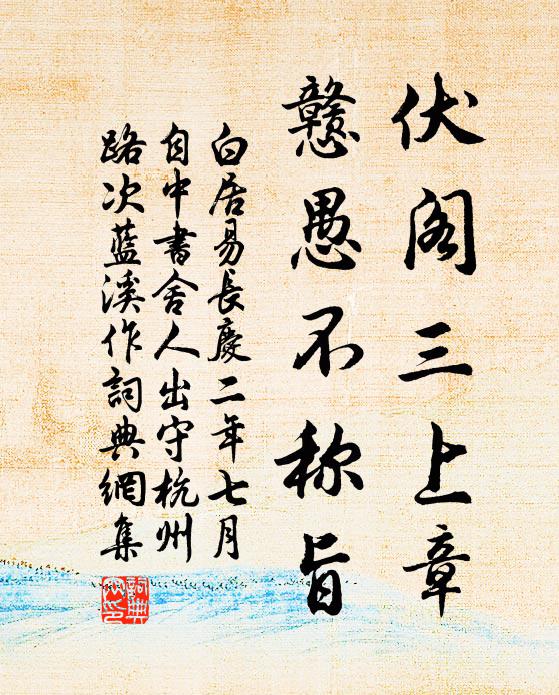 伏阁三上章
戆愚不称旨
白居易長慶二年七月
自中書舍人出守杭州
路次藍溪作詞典網集